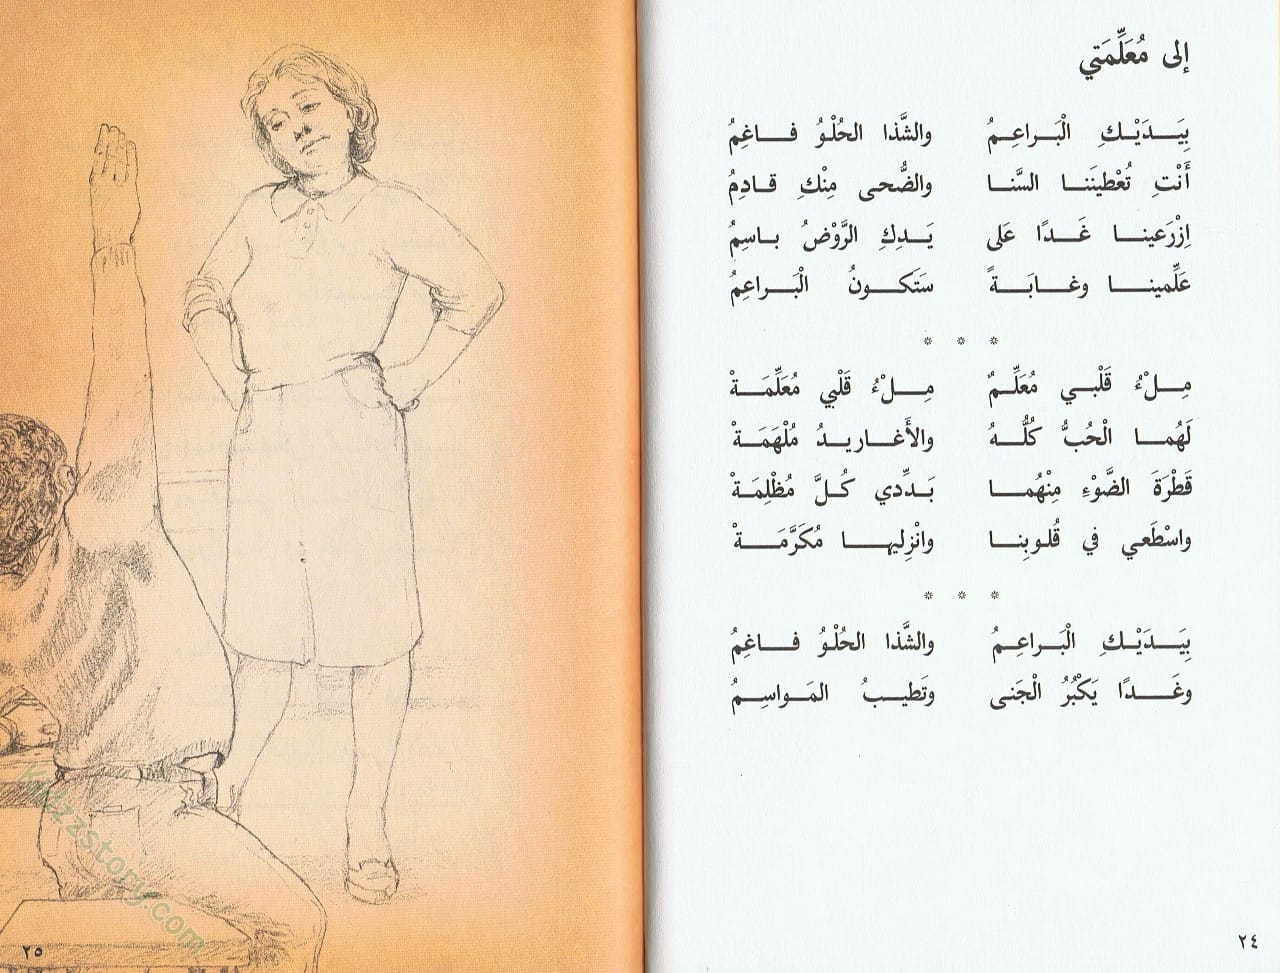 إلى مُعَلِّمَتي
بِيَدَيْكِ الْبَراعِمُ والشَّذا الحُلْوُ فاغِمُ
أَنْتِ تُعْطينَنا السَّنا والضُّحى مِنْكِ قادِمُ
اِزْرَعينا غَدًا عَلى يَدِكِ الرَّوْضُ باسِمُ
عَلِّمينا وغابَةً سَتَكونُ الْبَراعِمُ
* * *
مِلْءُ قَلْبي مُعَلِّمٌ مِلْءُ قَلْبي مُعَلِّمَةْ
لَهُما الْحُبُّ كُلُّهُ والأَغاريدُ مُلْهَمَةْ
قَطْرَةَ الضَّوْءِ مِنْهُما بَدِّدي كُلَّ مُظْلِمَةْ
واسْطَعي في قُلوبِنا وانْزِليها مُكَرَّمَةْ
* * *
بِيَدَيْكِ الْبَراعِمُ والشَّذا الحُلْوُ فاغِمُ
وغَدًا يَكْبُرُ الْجَنى وتَطيبُ المَواسِمُ
٢٤
kidzzstory.com
٢٥